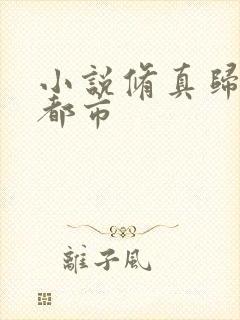 小說脩真歸
都市
離子風